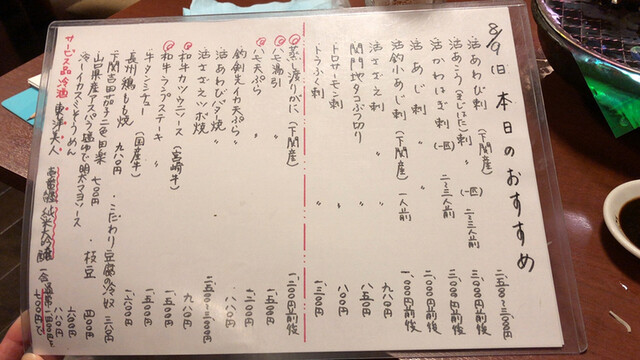 8/9(日) 本日のおすすめ
活あわび刺 (下関産) 二、五〇〇〜三、〇〇〇円
活あこう(きじはた)刺 〃 (一匹) 二〜三人前 三、〇〇〇円前後
活かわはぎ刺 (一匹) 二〜三人前 三、〇〇〇円前後
活あじ刺 〃 二、〇〇〇円前後
活釣小あじ刺 (下関産) 一人前 一、〇〇〇円前後
活さざえ刺 〃 九八〇円
関門地タコぶつ切り 〃 八五〇円
トロサーモン刺 八〇〇円
トラふぐ刺 〃 一、二〇〇円
蒸し渡りがに (下関産) 一、二〇〇円前後
ハモ湯引 〃
ハモ天ぷら 〃 一、二〇〇円
釣剣先イカ天ぷら 〃 八八〇円
活あわびバター焼 〃 二、五〇〇〜三、〇〇〇円
活さざえツボ焼 〃 九八〇円
和牛カツウニソース (宮崎牛) 一、五〇〇円
和牛ランプステーキ 〃 一、五〇〇円
牛タンシチュー (国産牛) 一、六〇〇円
長州鶏もも焼 九八〇円 ・こだわり豆腐の冷奴 三六〇円
下関吉田茄子二色田楽 七〇〇円 ・枝豆 四〇〇円
山口県産アスパラ塩ゆで明太マヨソース
冷しイカスミそうめん
サービス品 冷酒 東洋美人 壱番纏 純米大吟醸 一合通常一四〇〇円を七〇〇円で